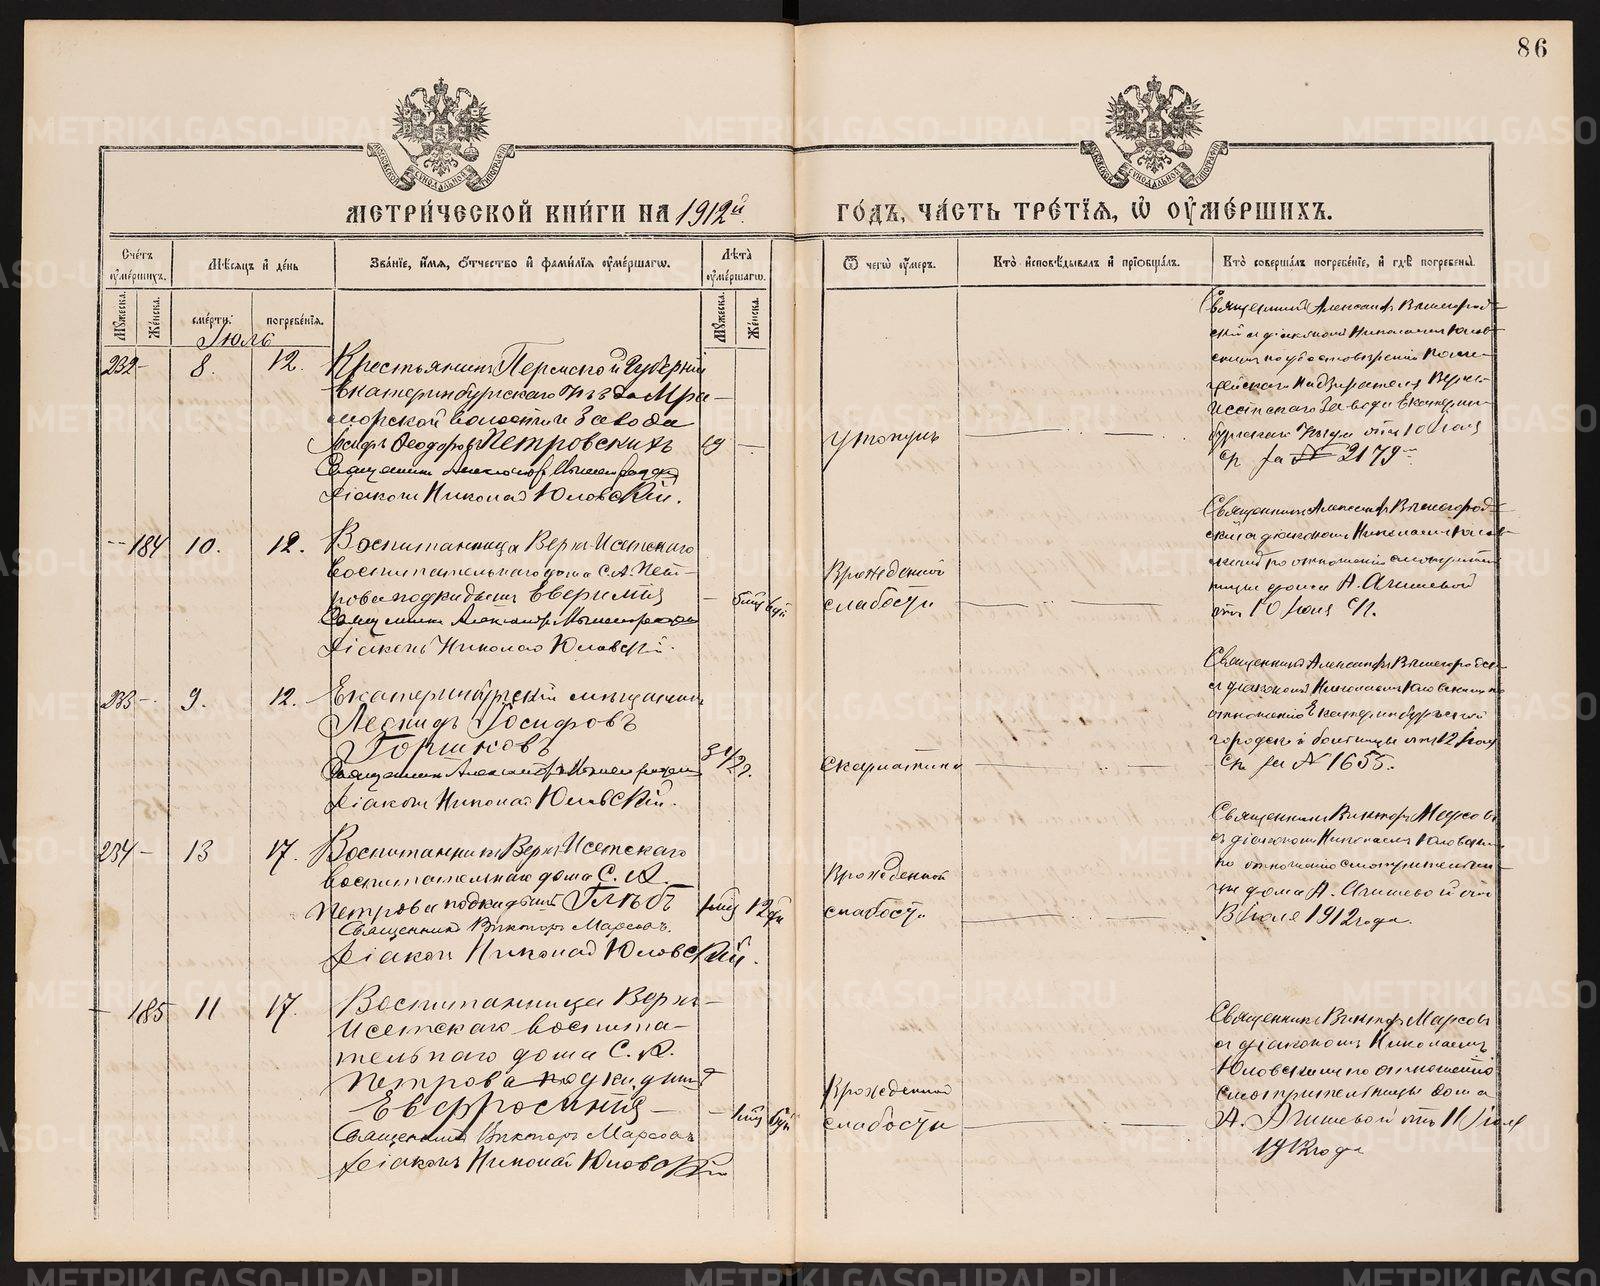 86
МЕТРИ́ЧЕСКОЙ КНИ́ГИ НА 1912й
ГО́ДЪ, ЧА́СТЬ ТРЕ́ТЇѦ, Ѡ҆ ОУ҆МЕ́РШИХЪ.
Сче́тъ оу҆ме́ршихъ.
Мѣ́сѧцъ и҆ де́нь
Зва́нїе, и҆́мѧ, ѻ҆́тчество и҆ фами́лїѧ оу҆ме́ршагѡ.
Лѣ́та оу҆ме́ршагѡ.
Ѿ чегѡ̀ оу҆́меръ.
Кто̀ и҆сповѣ́дывалъ и҆ прїѡбща́лъ.
Кто̀ соверша́лъ погребе́нїе, и҆ гдѣ̀ погребены̀.
Мꙋ́жеска.
Же́нска.
сме́рти.
погребе́нїѧ.
Мꙋ́жеска.
Же́нска.
Іюль
232 -
8.
12.
Крестьянинъ Пермской губерніи
Екатеринбургскаго уѣзда Мра-
морской волости и Завода
Іосифъ Ѳеодоровъ Петровскихъ
Священникъ Александръ
Діаконъ Николай Юловскій.
69 —
утонулъ
Священникъ Александръ
скій съ діакономъ Николаемъ Юлов-
скимъ по удостовѣренію Поли-
цейскаго Надзирателя Верхъ-
Исетскаго Завода Екатерин-
бургскаго уѣзда отъ 10 Іюля
с/г. за № 2179
- 184
10.
12.
Воспитанница Верхъ-Исетскаго
воспитательнаго дома С. А. Пет-
рова подкидышъ
Священникъ Александръ
Діаконъ Николай Юловскій.
Врожденной
слабости
Священникъ Александръ
скій съ діакономъ Николаемъ Юлов-
скимъ по отношенію смотритель-
ницы дома А. Агишевой
отъ 10 Іюля с/г.
233 -
9.
12.
Екатеринбургскій мѣщанинъ
Леонидъ Іосифовъ
Горшковъ
Священникъ Александръ
Діаконъ Николай Юловскій.
3 1/2 г.
скарлатины
Священникъ Александръ
съ діакономъ Николаемъ Юловскимъ по
отношенію Екатеринбургской
городской больницы отъ 12 Іюля
с/г. за № 1655.
234 -
13
17.
Воспитанникъ Верхъ-Исетскаго
воспитательнаго дома С. А.
Петрова подкидышъ Глѣбъ
Священникъ Викторъ Марсовъ.
Діаконъ Николай Юловскій.
1 мѣс 12 дн
Врожденной
слабости
Священникъ Викторъ Марсовъ
съ діакономъ Николаемъ Юловскимъ
по отношенію смотрительни-
цы дома А. Агишевой отъ
13 Іюля 1912 года.
- 185
11
17.
Воспитанница Верхъ-
Исетскаго воспита-
тельнаго дома С. А.
Петрова подкидышъ
Евфросинія -
Священникъ Викторъ Марсовъ
Діаконъ Николай Юловскій
- 1 мѣс
Врожденной
слабости
Священникъ Викторъ Марсовъ
съ діакономъ Николаемъ
Юловскимъ по отношенію
смотрительницы дома
А. Агишевой отъ 11 Іюля
1912 года